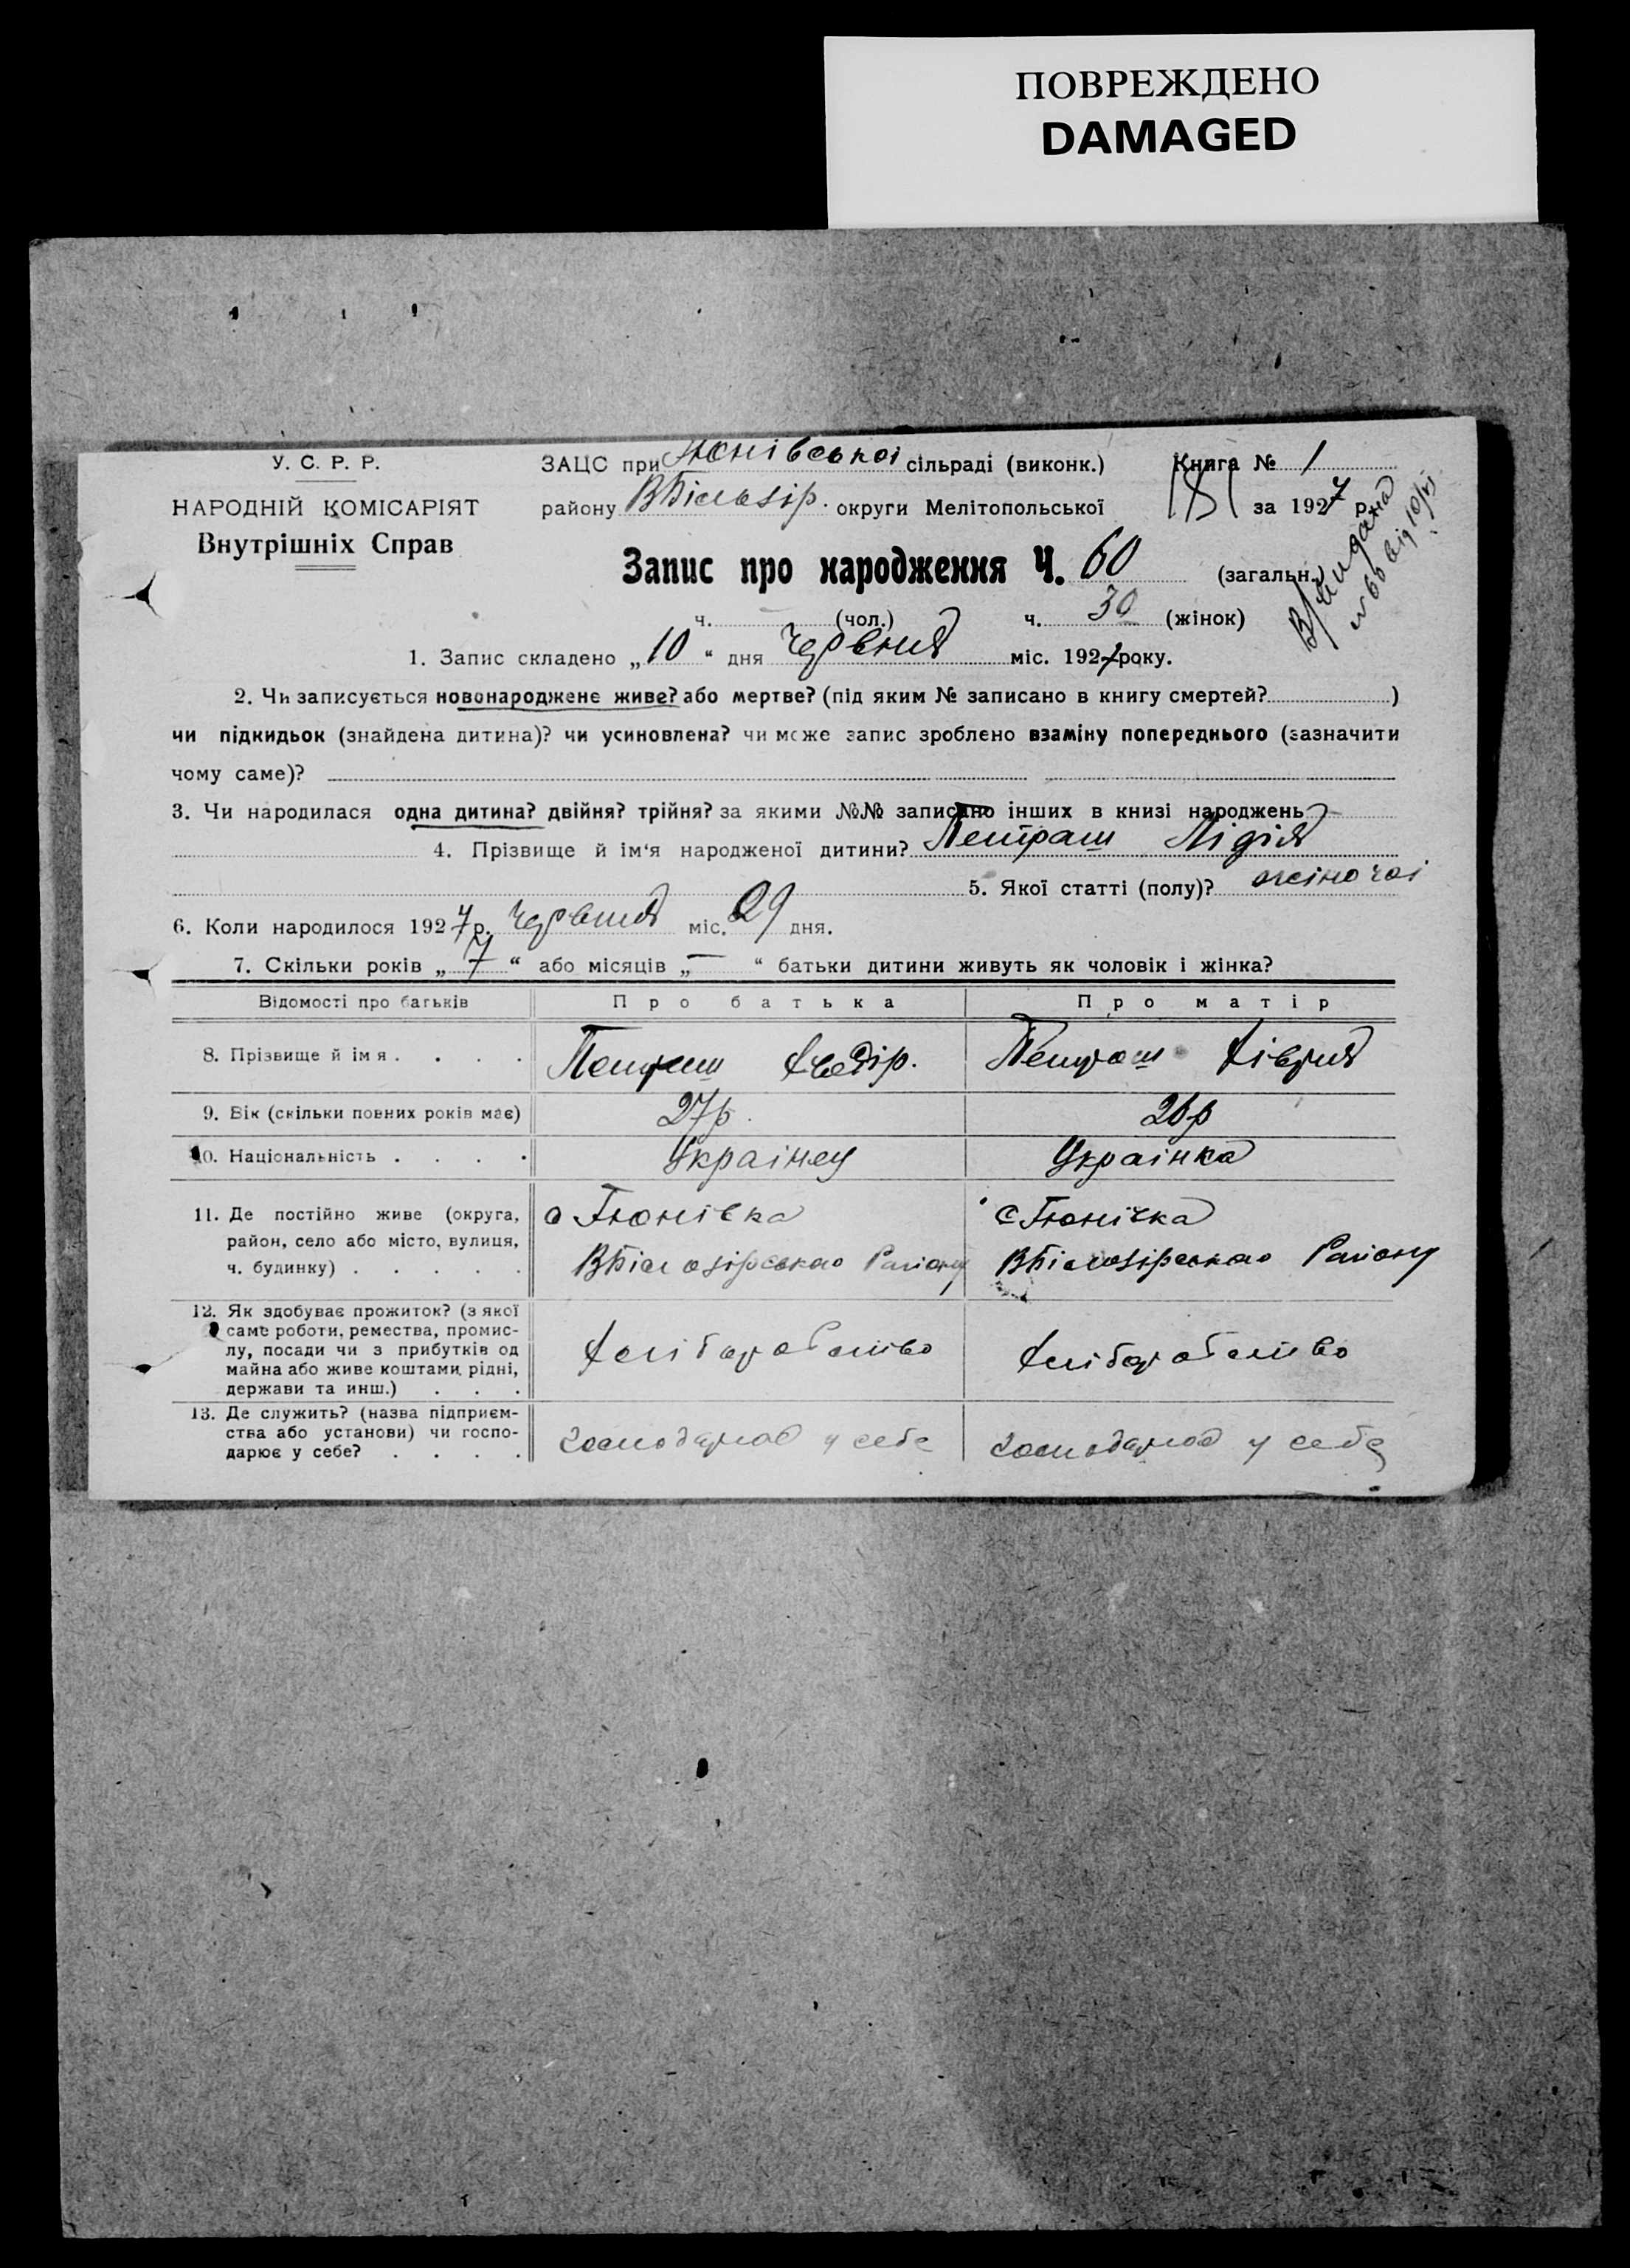 ПОВРЕЖДЕНО
DAMAGED
У. С. Р. Р.
НАРОДНІЙ КОМІСАРІЯТ
Внутрішніх Справ
ЗАЦС при Тюнівської сільраді (виконк.)
району ВБілозір. округи Мелітопольської
Книга № 1
за 1927 р.
Видана
№ 66 від 10/VI
Запис про народження Ч. 60 (загальн.)
ч. (чол.) ч. 30 (жінок)
1. Запис складено „10“ дня Червня міс. 1927 року.
2. Чи записується новонароджене живе? або мертве? (під яким № записано в книгу смертей? )
чи підкидьок (знайдена дитина)? чи усиновлена? чи може запис зроблено взаміну попереднього (зазначити
чому саме)?
3. Чи народилася одна дитина? двійня? трійня? за якими №№ записано інших в книзі народжень?
4. Прізвище й ім‘я народженої дитини? Петраш Лідія
5. Якої статті (полу)? жіночої
6. Коли народилося 1927 р. Червня міс. 29 дня.
7. Скільки років „7“ або місяців „—“ батьки дитини живуть як чоловік і жінка?
Відомості про батьків Про батька Про матір
8. Прізвище й імя . . . . Петраш Федір. Петраш
9. Вік (скільки повних років має) 27р. 26р
10. Національність . . . . Українец Українка
11. Де постійно живе (округа, с Тюнівка с Тюнівка
район, село або місто, вулиця,
ч. будинку) . . . . . ВБілозірского Району ВБілозірского Району
12. Як здобуває прожиток? (з якої
саме роботи, ремества, промис-
лу, посади чи з прибутків од
майна або живе коштами, рідні,
держави та инш.) . . . Хліборобство Хліборобство
13. Де служить? (назва підприєм-
ства або установи) чи госпо-
дарює у себе? . . . . господарює у себе господарює у себе